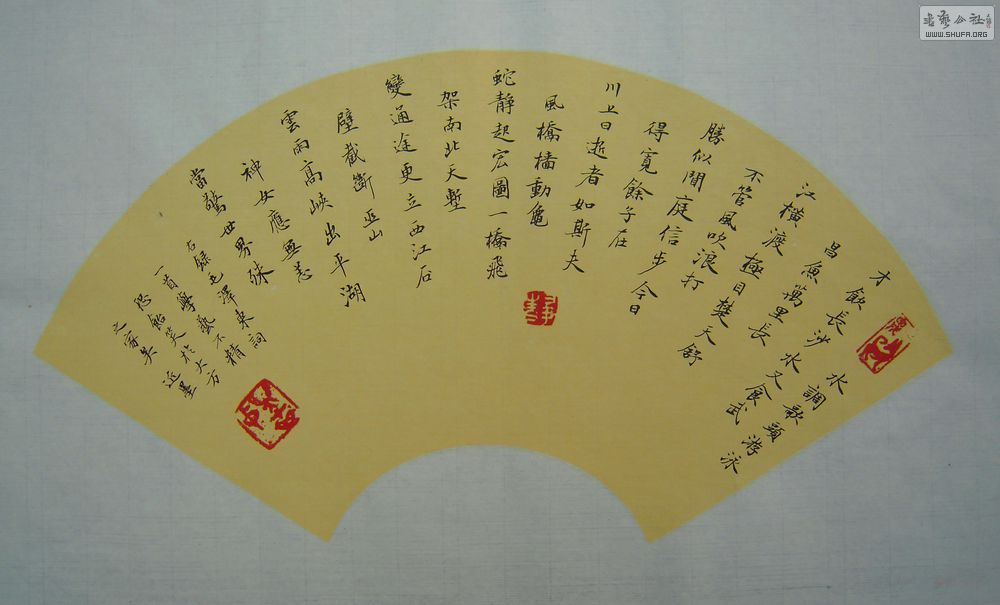 水調歌頭 游泳
才飲長沙水又食武
昌魚萬里長
江橫渡極目楚天舒
不管風吹浪打
勝似閒庭信步今日
得寬餘子在
川上曰逝者如斯夫
風橋檣動龜
蛇靜起宏圖一橋飛
架南北天塹
變通途更立西江石
壁截斷巫山
雲雨高峽出平湖
神女應無恙
當驚世界殊
右録毛澤東詞
一首學藝不精
恐貽笑於大方
之家矣 近墨
書藝公社
WWW.SHUFA.ORG